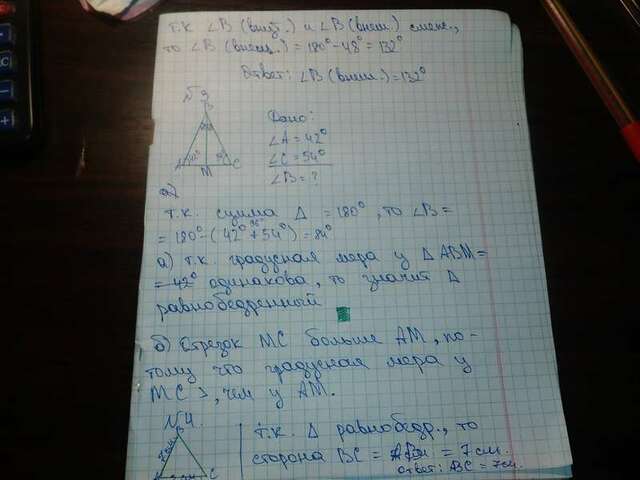 т.к ∠B (внут.) и ∠B (внеш.) смеж.,
то ∠B (внеш.) = 180° - 48° = 132°
Ответ: ∠B (внеш.) = 132°
№3
B
A
M
C
Дано:
∠A = 42°
∠C = 54°
∠B = ?
т.к. сумма Δ = 180°, то ∠B =
= 180° - (42° + 54°) = 84°
96°
а) т.к. градусная мера у Δ ABM =
= 42° одинакова, то значит Δ
равнобедренный
б) Отрезок MC больше AM, по-
тому что градусная мера у
MC >, чем у AM.
№4.
B
C
т.к. Δ равнобедр., то
сторона BC = AB = 7 см.
Ответ: BC = 7см.